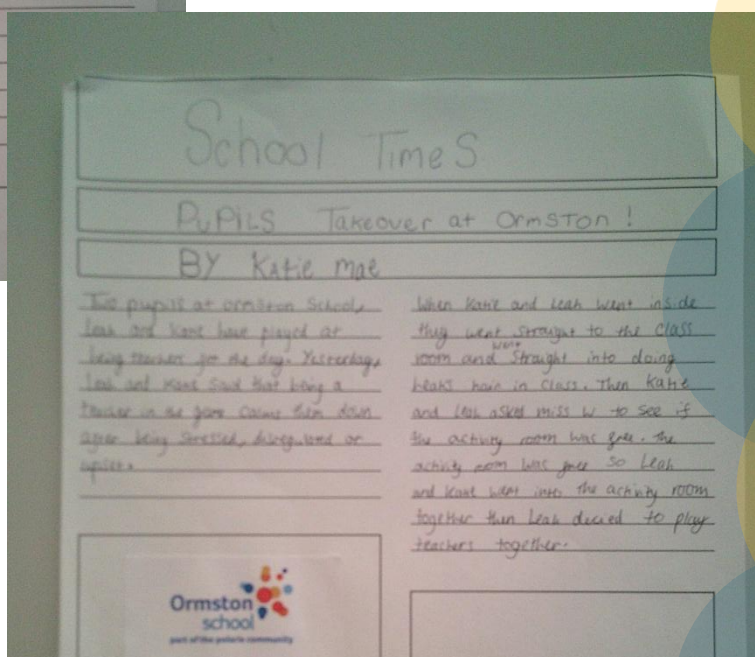 School Times
PUPILS Takeover at Ormston !
BY Katie mae
Two pupils at ormston School,
Leah and Katie have played at
being teachers for the day. Yesterday,
Leah and Katie said that being a
teacher in the game calms them down
after being stressed, disregulated or
upset.
When Katie and Leah went inside
they went straight to the class
room and went straight into doing
Leahs hair in class. Then Katie
and Leah asked miss W to see if
the activity room was free. the
activity room was free so Leah
and Katie went into the activity room
together then Leah decied to play
teachers together.
Ormston
school
part of the polaris community